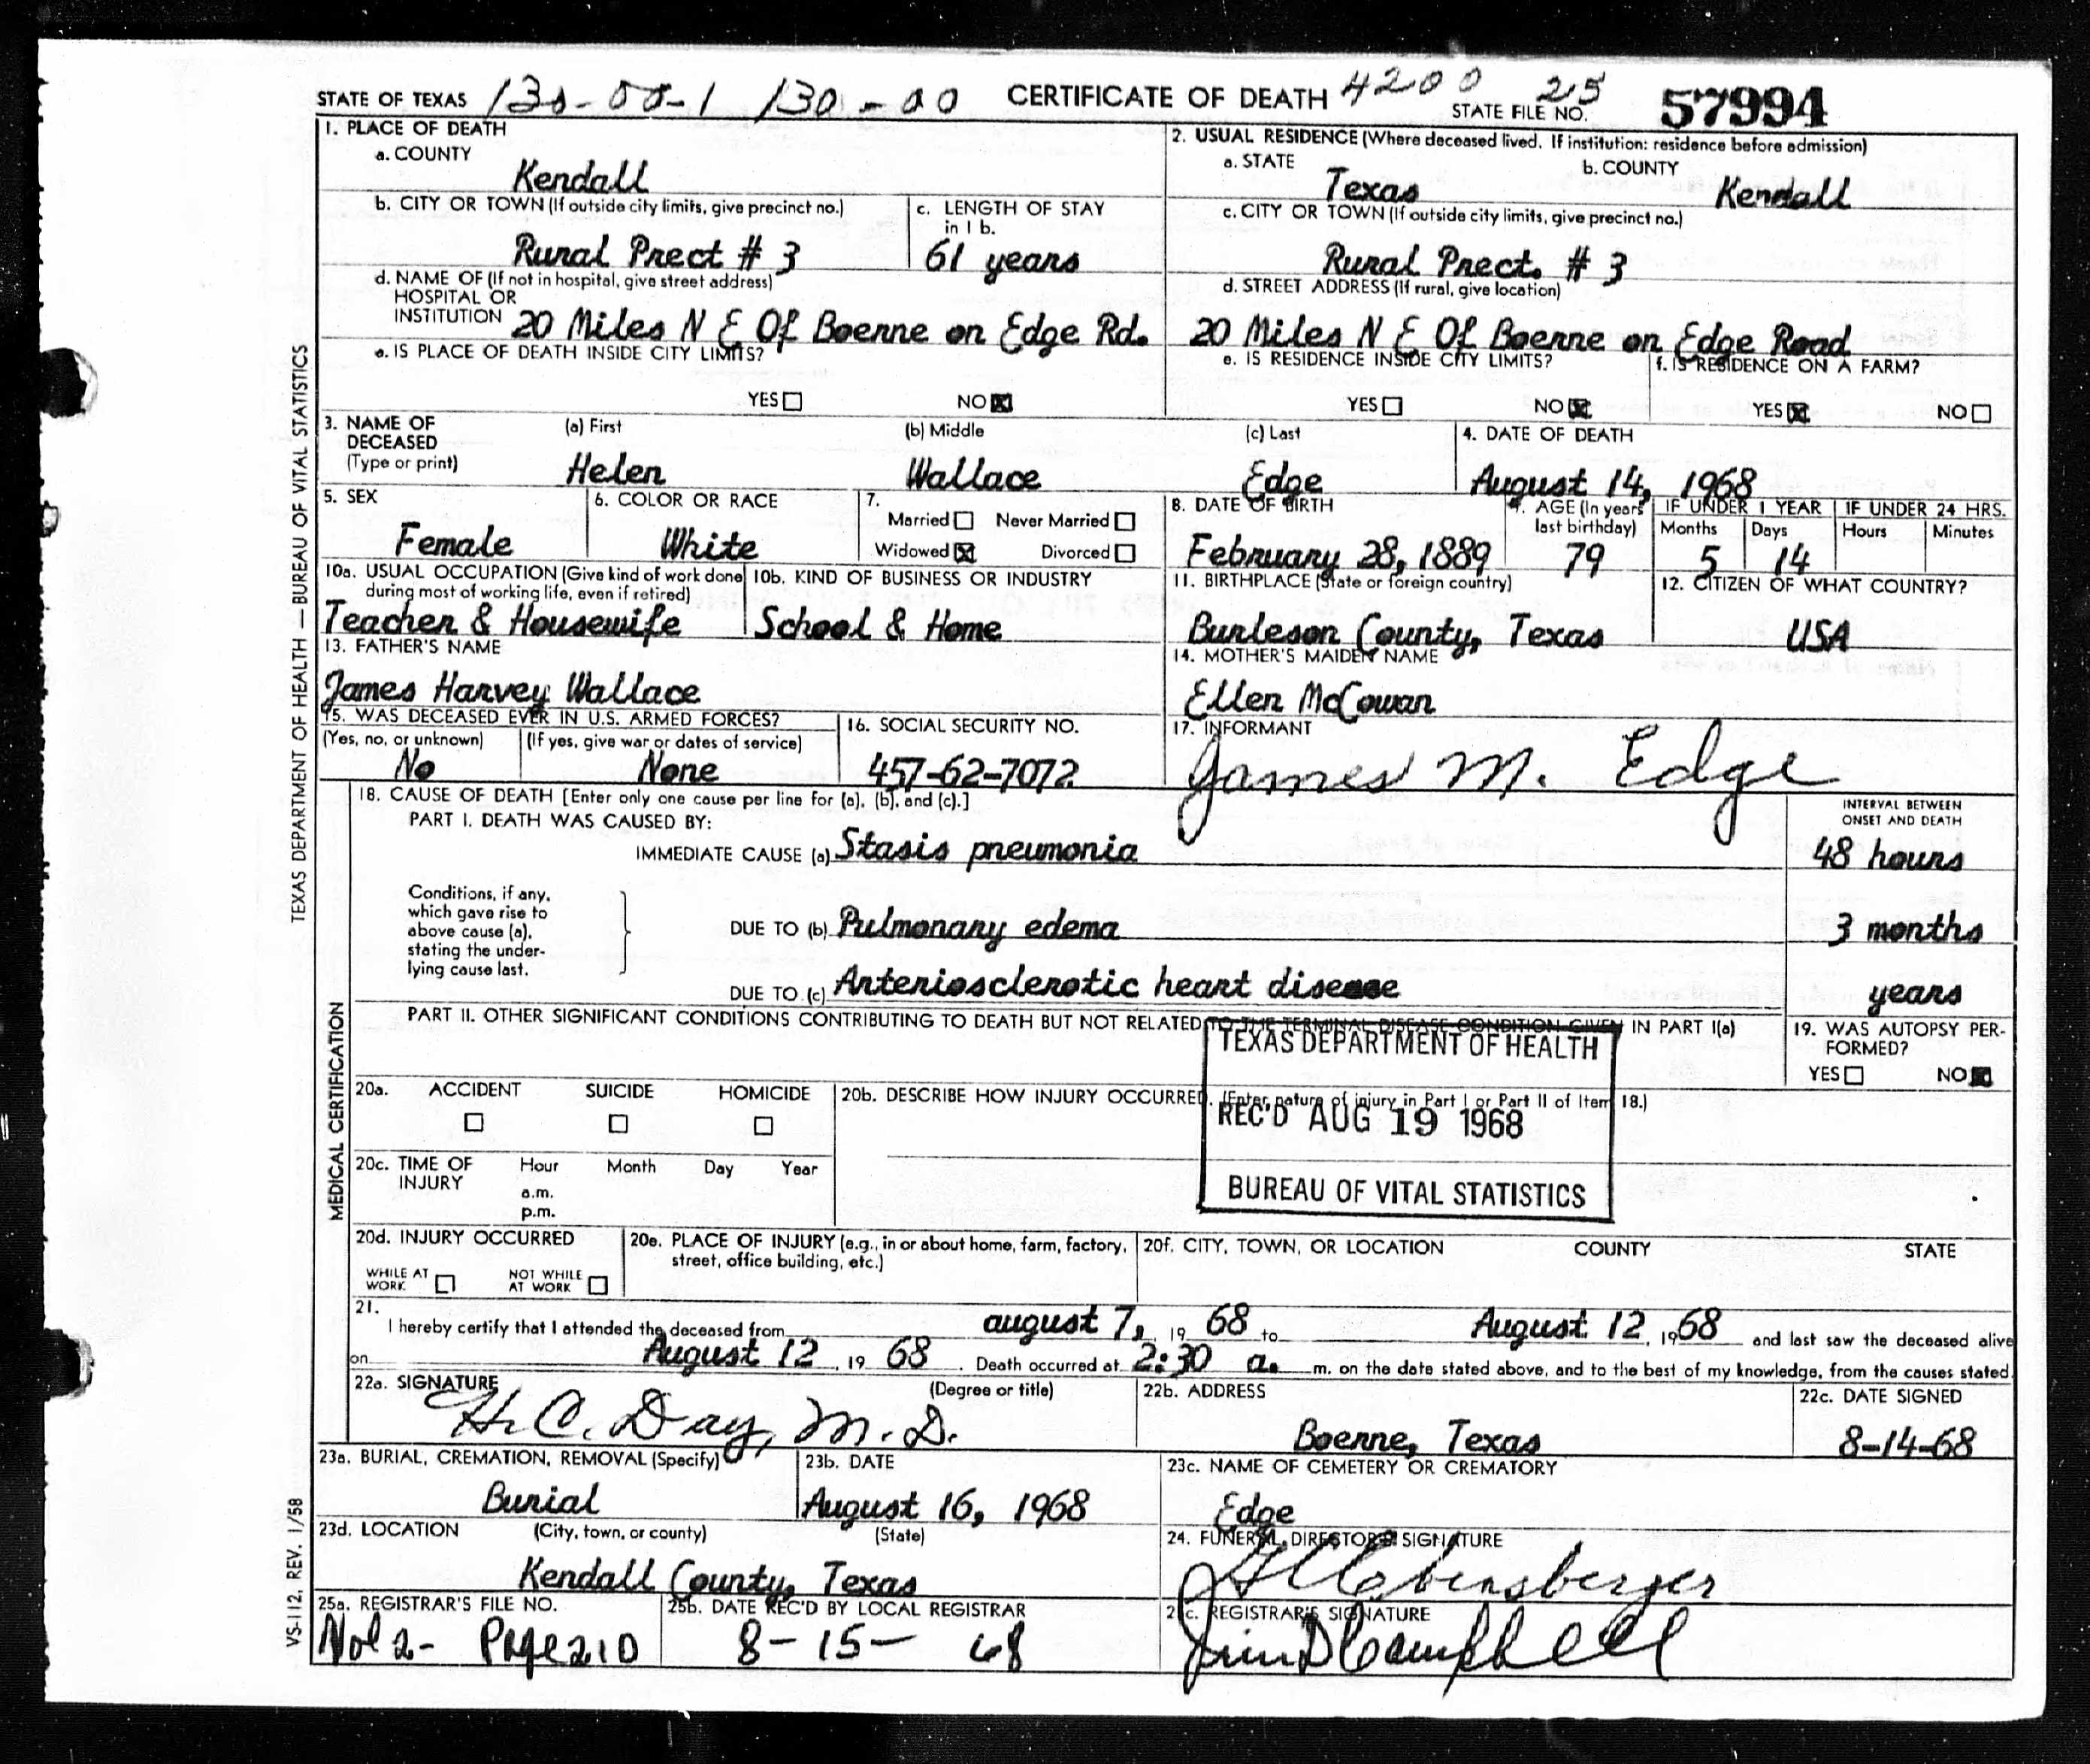 STATE OF TEXAS 130-00-1 130-00 CERTIFICATE OF DEATH 4200 25 STATE FILE NO. 57994
1. PLACE OF DEATH
a. COUNTY
Kendall
b. CITY OR TOWN (If outside city limits, give precinct no.)
Rural Prect # 3
c. LENGTH OF STAY in 1 b.
61 years
d. NAME OF (If not in hospital, give street address)
HOSPITAL OR
INSTITUTION 20 Miles N E Of Boerne on Edge Rd.
e. IS PLACE OF DEATH INSIDE CITY LIMITS?
YES☐ NO☒
2. USUAL RESIDENCE (Where deceased lived. If institution: residence before admission)
a. STATE
Texas
b. COUNTY
Kendall
c. CITY OR TOWN (If outside city limits, give precinct no.)
Rural Prect. # 3
d. STREET ADDRESS (If rural, give location)
20 Miles N E Of Boerne on Edge Road
e. IS RESIDENCE INSIDE CITY LIMITS?
YES☐ NO☒
f. IS RESIDENCE ON A FARM?
YES☒ NO☐
3. NAME OF DECEASED
(Type or print)
(a) First
Helen
(b) Middle
Wallace
(c) Last
Edge
4. DATE OF DEATH
August 14, 1968
5. SEX
Female
6. COLOR OR RACE
White
7.
Married☐ Never Married☐
Widowed☒ Divorced☐
8. DATE OF BIRTH
February 28, 1889
9. AGE (In years last birthday)
79
IF UNDER 1 YEAR
Months Days
5 14
IF UNDER 24 HRS.
Hours Minutes
10a. USUAL OCCUPATION (Give kind of work done
during most of working life, even if retired)
Teacher & Housewife
10b. KIND OF BUSINESS OR INDUSTRY
School & Home
11. BIRTHPLACE (State or foreign country)
Burleson County, Texas
12. CITIZEN OF WHAT COUNTRY?
USA
13. FATHER'S NAME
James Harvey Wallace
14. MOTHER'S MAIDEN NAME
Ellen McCowan
15. WAS DECEASED EVER IN U.S. ARMED FORCES?
(Yes, no, or unknown) (If yes, give war or dates of service)
No None
16. SOCIAL SECURITY NO.
457-62-7072
17. INFORMANT
James M. Edge
18. CAUSE OF DEATH [Enter only one cause per line for (a), (b), and (c).]
INTERVAL BETWEEN
ONSET AND DEATH
PART I. DEATH WAS CAUSED BY:
IMMEDIATE CAUSE (a) Stasis pneumonia 48 hours
Conditions, if any,
which gave rise to
above cause (a),
stating the under-
lying cause last.
DUE TO (b) Pulmonary edema 3 months
DUE TO (c) Arteriosclerotic heart disease years
PART II. OTHER SIGNIFICANT CONDITIONS CONTRIBUTING TO DEATH BUT NOT RELATED TO THE TERMINAL DISEASE CONDITION GIVEN IN PART I(a)
19. WAS AUTOPSY PER-
FORMED?
YES☐ NO☒
TEXAS DEPARTMENT OF HEALTH
REC'D AUG 19 1968
BUREAU OF VITAL STATISTICS
20a. ACCIDENT SUICIDE HOMICIDE
☐ ☐ ☐
20b. DESCRIBE HOW INJURY OCCURRED. (Enter nature of injury in Part I or Part II of Item 18.)
20c. TIME OF INJURY
Hour Month Day Year
a.m.
p.m.
20d. INJURY OCCURRED
WHILE AT WORK ☐ NOT WHILE AT WORK ☐
20e. PLACE OF INJURY (e.g., in or about home, farm, factory,
street, office building, etc.)
20f. CITY, TOWN, OR LOCATION COUNTY STATE
21.
I hereby certify that I attended the deceased from august 7, 19 68 to August 12, 1968 and last saw the deceased alive
on August 12, 19 68. Death occurred at 2:30 a. m. on the date stated above, and to the best of my knowledge, from the causes stated.
22a. SIGNATURE (Degree or title)
H. C. Day, M. D.
22b. ADDRESS
Boerne, Texas
22c. DATE SIGNED
8-14-68
23a. BURIAL, CREMATION, REMOVAL (Specify)
Burial
23b. DATE
August 16, 1968
23c. NAME OF CEMETERY OR CREMATORY
Edge
23d. LOCATION (City, town, or county) (State)
Kendall County, Texas
24. FUNERAL DIRECTOR'S SIGNATURE
Ebensberger
25a. REGISTRAR'S FILE NO.
Vol 2- Page 210
25b. DATE REC'D BY LOCAL REGISTRAR
8-15-68
25c. REGISTRAR'S SIGNATURE
Campbell
TEXAS DEPARTMENT OF HEALTH — BUREAU OF VITAL STATISTICS
MEDICAL CERTIFICATION
VS-112, REV. 1/58